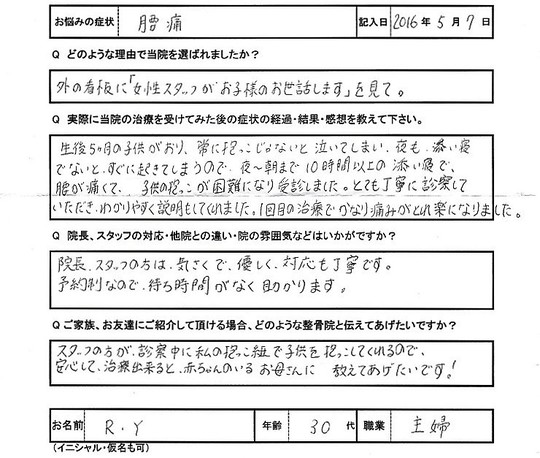 お悩みの症状 腰痛 記入日 2016年 5月 7日
Q どのような理由で当院を選ばれましたか？
外の看板に「女性スタッフがお子様のお世話します」を見て。
Q 実際に当院の治療を受けてみた後の症状の経過・結果・感想を教えて下さい。
生後5ヶ月の子供がおり、常に抱っこじゃないと泣いてしまい、夜も、添い寝
でないと、すぐに起きてしまうので、夜～朝まで10時間以上の添い寝で、
腰が痛くて、子供の抱っこが困難になり受診しました。とても丁寧に診察して
いただき、わかりやすく説明もしてくれました。1回目の治療でかなり痛みがとれ楽になりました。
Q 院長、スタッフの対応・他院との違い・院の雰囲気などはいかがですか？
院長、スタッフの方は、気さくで、優しく、対応も丁寧です。
予約制なので、待ち時間がなく助かります。
Q ご家族、お友達にご紹介して頂ける場合、どのような整骨院と伝えてあげたいですか？
スタッフの方が、診察中に私の抱っこ紐で子供を抱っこしてくれるので、
安心して、治療出来ると、赤ちゃんのいるお母さんに 教えてあげたいです！
お名前 R.Y 年齢 30代 職業 主婦
(イニシャル・仮名も可)